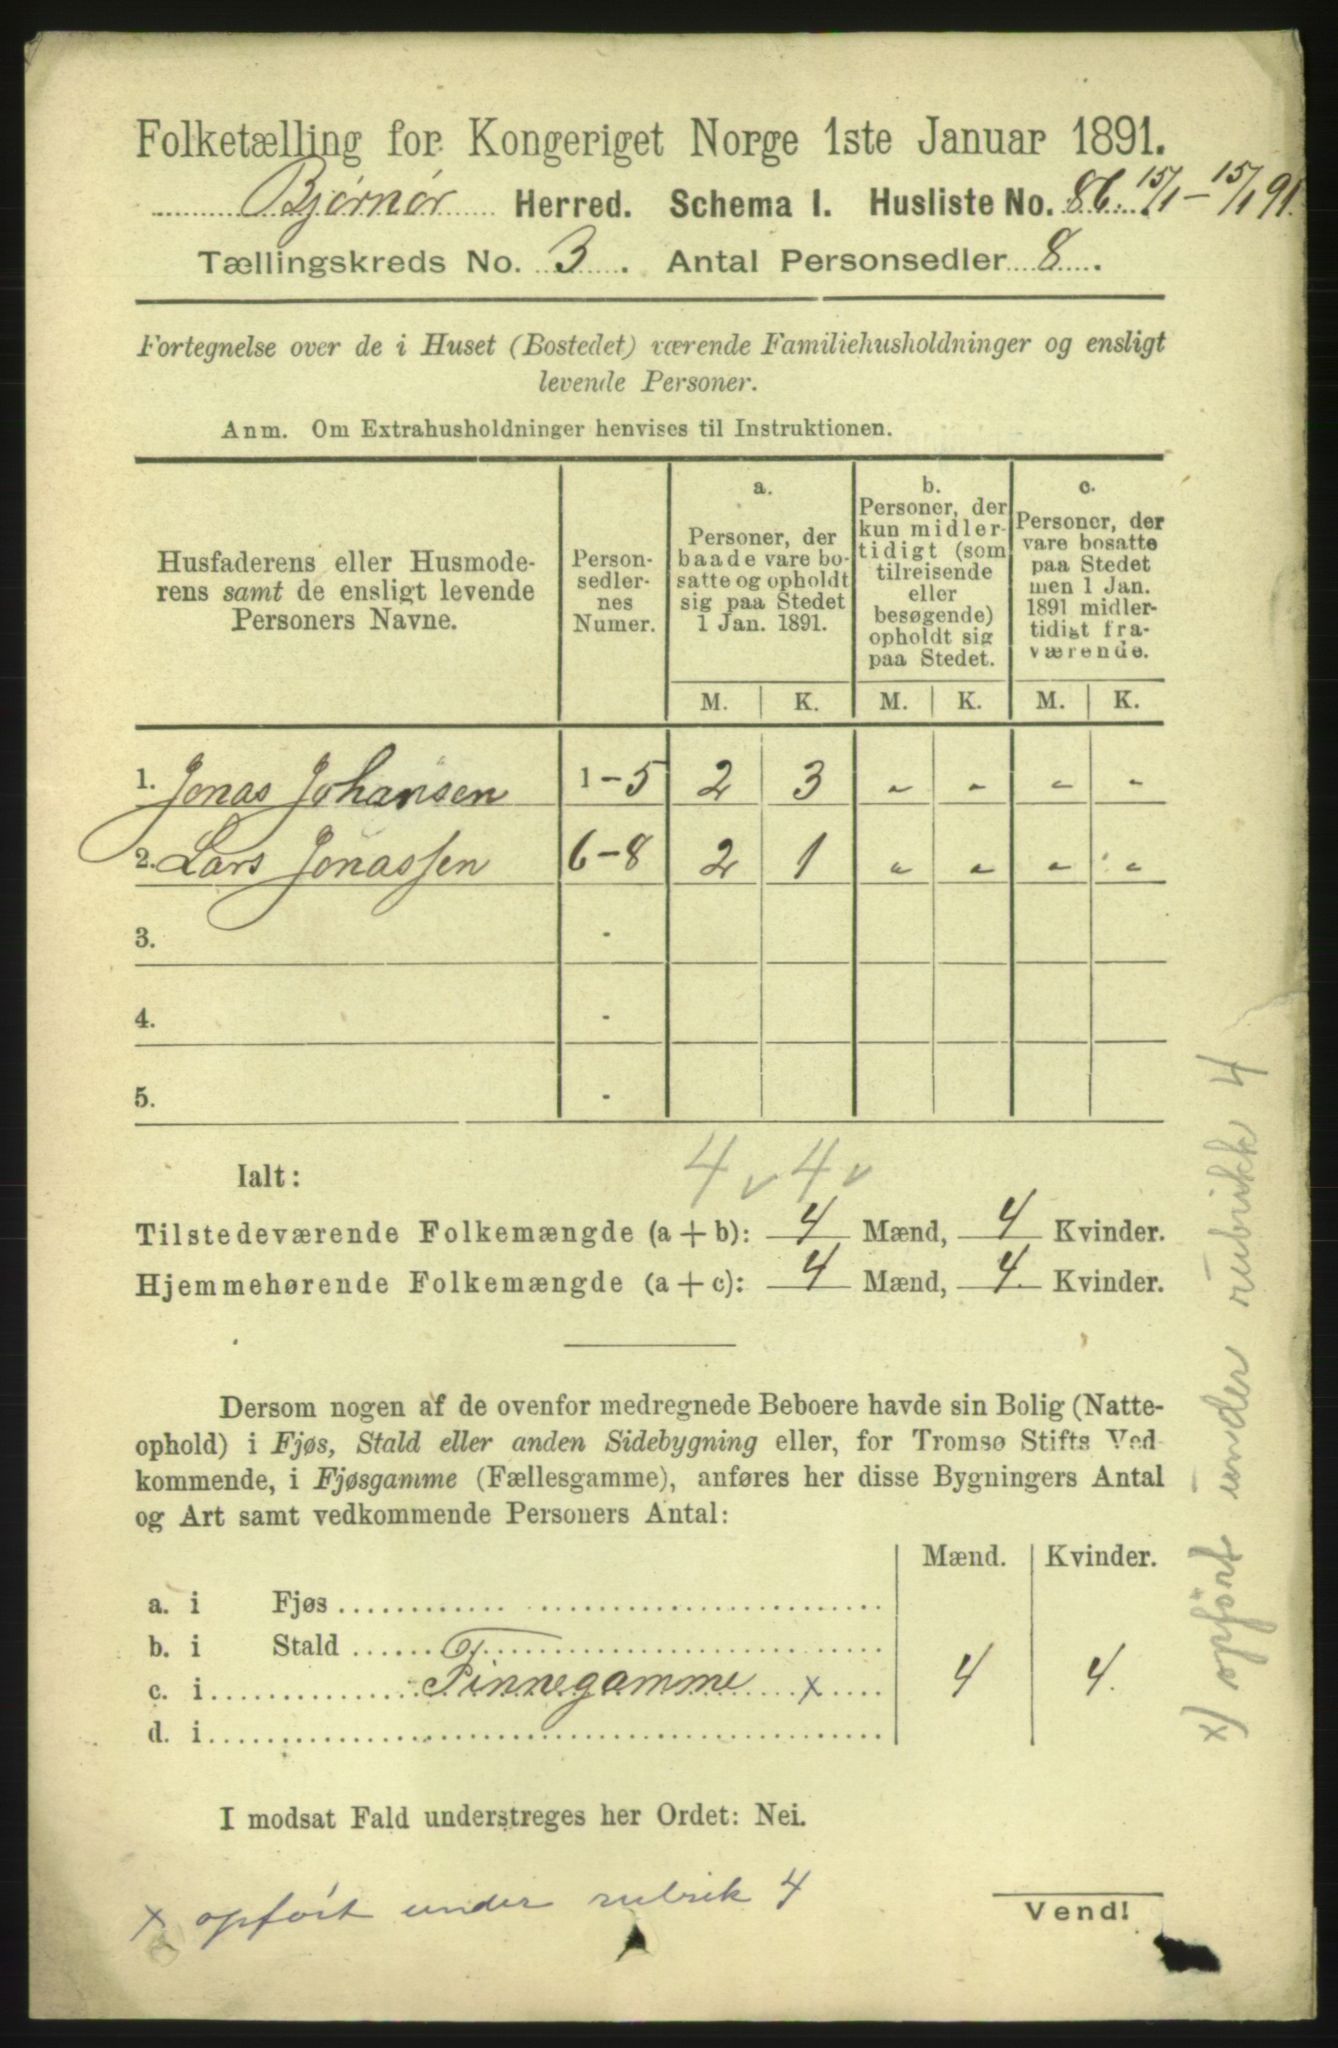 Folketælling for Kongeriget Norge 1ste Januar 1891.
Bjørnør Herred. Schema I. Husliste No. 86 15/1 - 15/1 91.
Tællingskreds No. 3. Antal Personsedler 8.
Fortegnelse over de i Huset (Bostedet) værende Familiehusholdninger og ensligt
levende Personer.
Anm. Om Extrahusholdninger henvises til Instruktionen.
Husfaderens eller Husmode-
rens samt de ensligt levende
Personers Navne.
Person-
sedler-
nes
Numer.
a.
Personer, der
baade vare bo-
satte og opholdt
sig paa Stedet
1 Jan. 1891.
b.
Personer, der
kun midler-
tidigt (som
tilreisende
eller
besøgende)
opholdt sig
paa Stedet.
c.
Personer, der
vare bosatte
paa Stedet
men 1 Jan.
1891 midler-
tidigt fra-
værende.
M. K. M. K. M. K.
1. Jonas Johansen 1-5 2 3 - - - -
2. Lars Jonassen 6-8 2 1 - - - -
3. -
4. -
5. -
Ialt: 4 v 4 v
Tilstedeværende Folkemængde (a + b): 4 Mænd, 4 Kvinder.
Hjemmehørende Folkemængde (a + c): 4 Mænd, 4 Kvinder.
Dersom nogen af de ovenfor medregnede Beboere havde sin Bolig (Natte-
ophold) i Fjøs, Stald eller anden Sidebygning eller, for Tromsø Stifts Ved-
kommende, i Fjøsgamme (Fællesgamme), anføres her disse Bygningers Antal
og Art samt vedkommende Personers Antal:
Mænd. Kvinder.
a. i Fjøs
b. i Stald
c. i Finnegamme x 4 4.
d. i
I modsat Fald understreges her Ordet: Nei.
x opført under rubrik 4
Vend!
x) opført under rubrikk 4